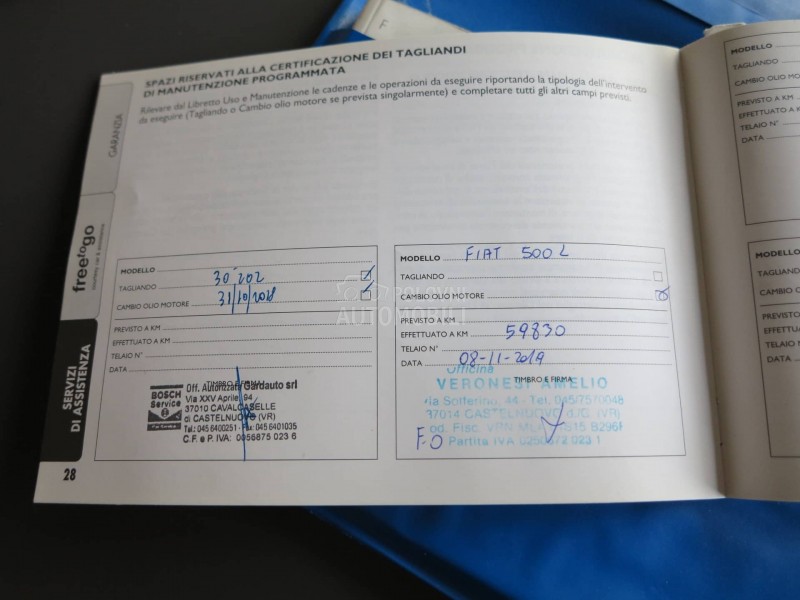 SPAZI RISERVATI ALLA CERTIFICAZIONE DEI TAGLIANDI
DI MANUTENZIONE PROGRAMMATA
Rilevare dal Libretto Uso e Manutenzione le cadenze e le operazioni da eseguire riportando la tipologia dell'intervento
da eseguire (Tagliando o Cambio olio motore se prevista singolarmente) e completare tutti gli altri campi previsti.
GARANZIA
free to go
SERVIZI
DI ASSISTENZA
MODELLO
TAGLIANDO 30.202
CAMBIO OLIO MOTORE 31/10/2018
PREVISTO A KM
EFFETTUATO A KM
TELAIO N°
DATA
TIMBRO E FIRMA
BOSCH
Service
Off. Autorizzata Gardauto srl
Via XXV Aprile, 94
37010 CAVALCASELLE
di CASTELNUOVO (VR)
Tel.: 045 6400251 - Fax: 045 6401035
C.F. e P. IVA: 0 023 6
MODELLO FIAT 500L
TAGLIANDO
CAMBIO OLIO MOTORE
PREVISTO A KM
EFFETTUATO A KM 59830
TELAIO N°
DATA 08-11-2019
TIMBRO E FIRMA
Officina
VERONESI AMELIO
Via Solferino, 44 - Tel. 045/7570048
37014 CASTELNUOVO d/G. (VR)
Partita IVA
F.O
28
MODELLO
TAGLIANDO
CAMBIO OLIO
PREVISTO A KM
EFFETTUATO A
TELAIO N°
DATA
MODELLO
TAGLIANDO
CAMBIO OLI
PREVISTO
EFFETTUATO
TELAIO N°
DATA
POLOVNI
AUTOMOBILI
F